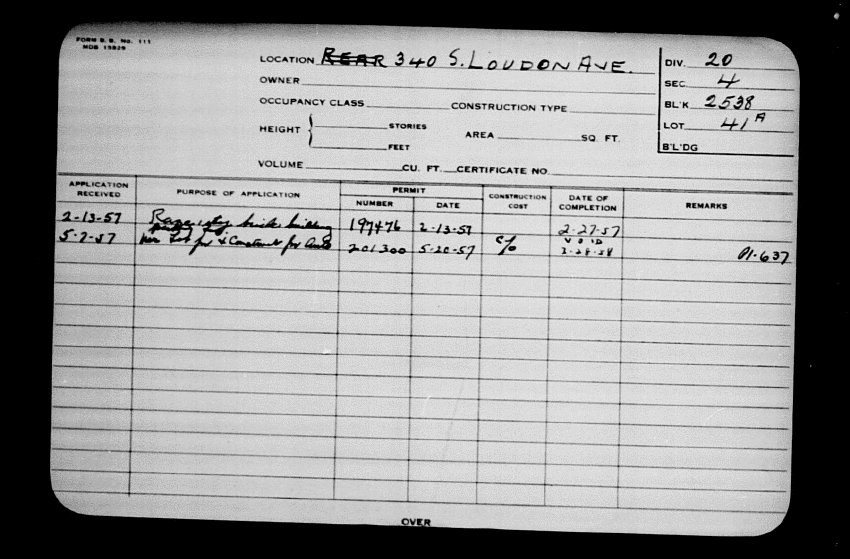 FORM B. B. No. 111
MDB 15829
LOCATION REAR 340 S. LOUDON AVE.
DIV. 20
OWNER
SEC. 4
OCCUPANCY CLASS CONSTRUCTION TYPE
BL'K 2538
HEIGHT STORIES FEET AREA SQ. FT.
LOT 41A
B'L'DG
VOLUME CU. FT. CERTIFICATE NO.
APPLICATION RECEIVED PURPOSE OF APPLICATION PERMIT NUMBER DATE CONSTRUCTION COST DATE OF COMPLETION REMARKS
2-13-57 Raze brick building 197476 2-13-57 2-27-57
VOID
5-7-57 Lot for & Construct for 201300 5-20-57 c/o 3-28-58 P1-637
OVER